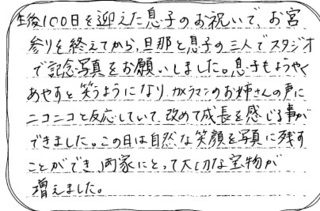 生後100日を迎えた息子のお祝いで、お宮
参りを終えてから、旦那と息子の三人でスタジオ
で記念写真をお願いしました。息子もようやく
あやすと笑うようになり、カメラマンのお姉さんの声に
ニコニコと反応していて、改めて成長を感じる事が
できました。この日は自然な笑顔を写真に残す
ことができ、両家にとって大切な宝物が
増えました。